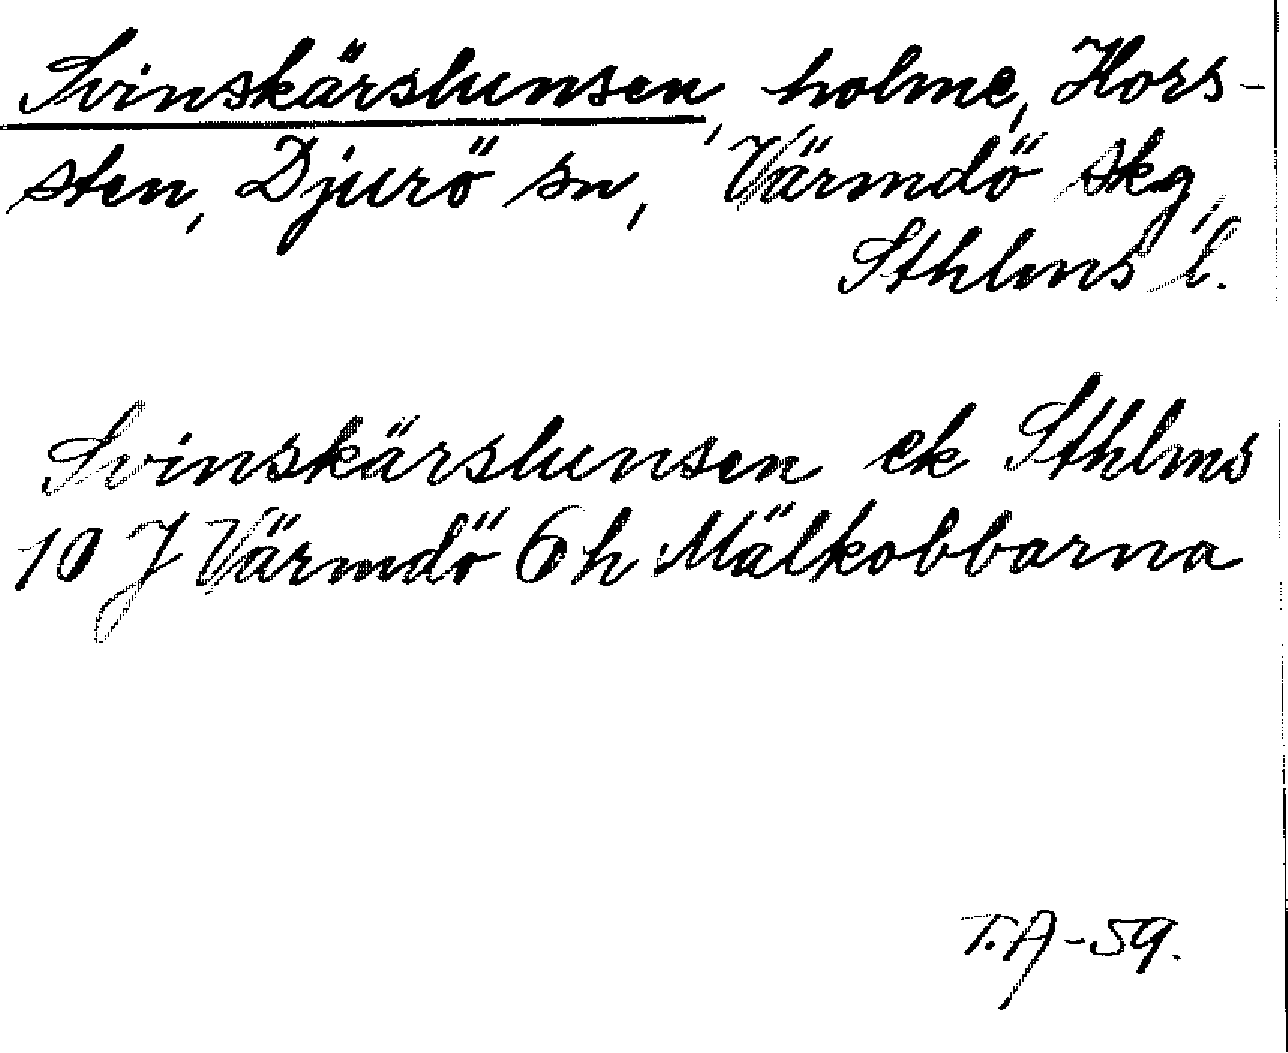 Svinskärslunsen, holme, Hors-
sten, Djurö sn, Värmdö skg,
Sthlms l.
Svinskärslunsen ek Sthlms
10 J Värmdö 6h Mälkobbarna
T.A-59.